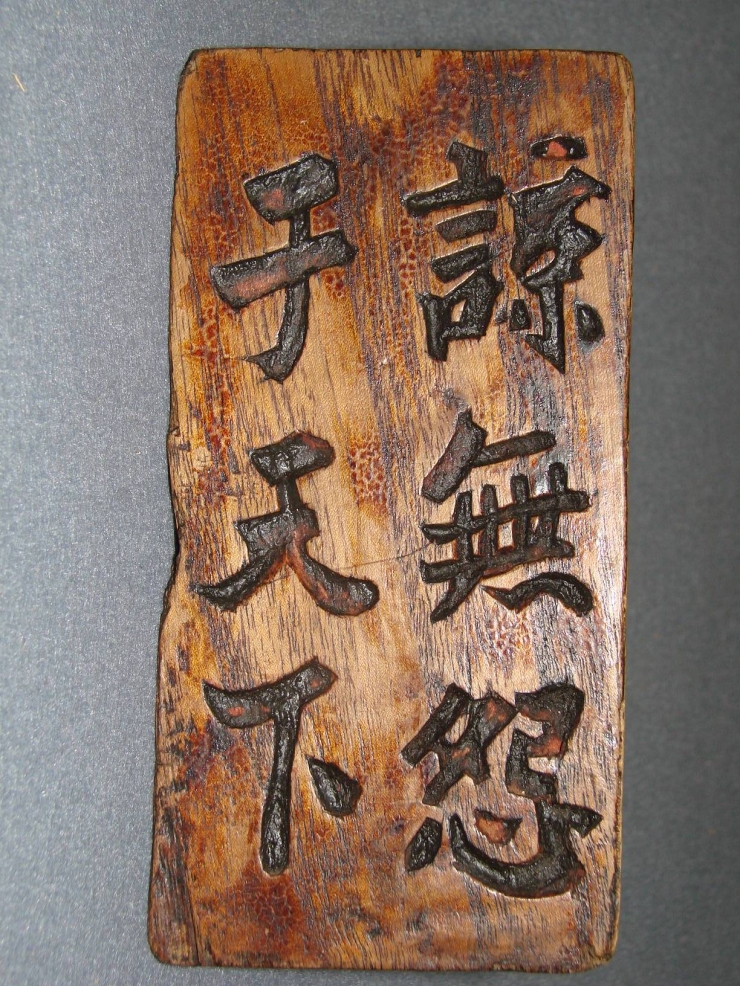 諒無怨
于天下